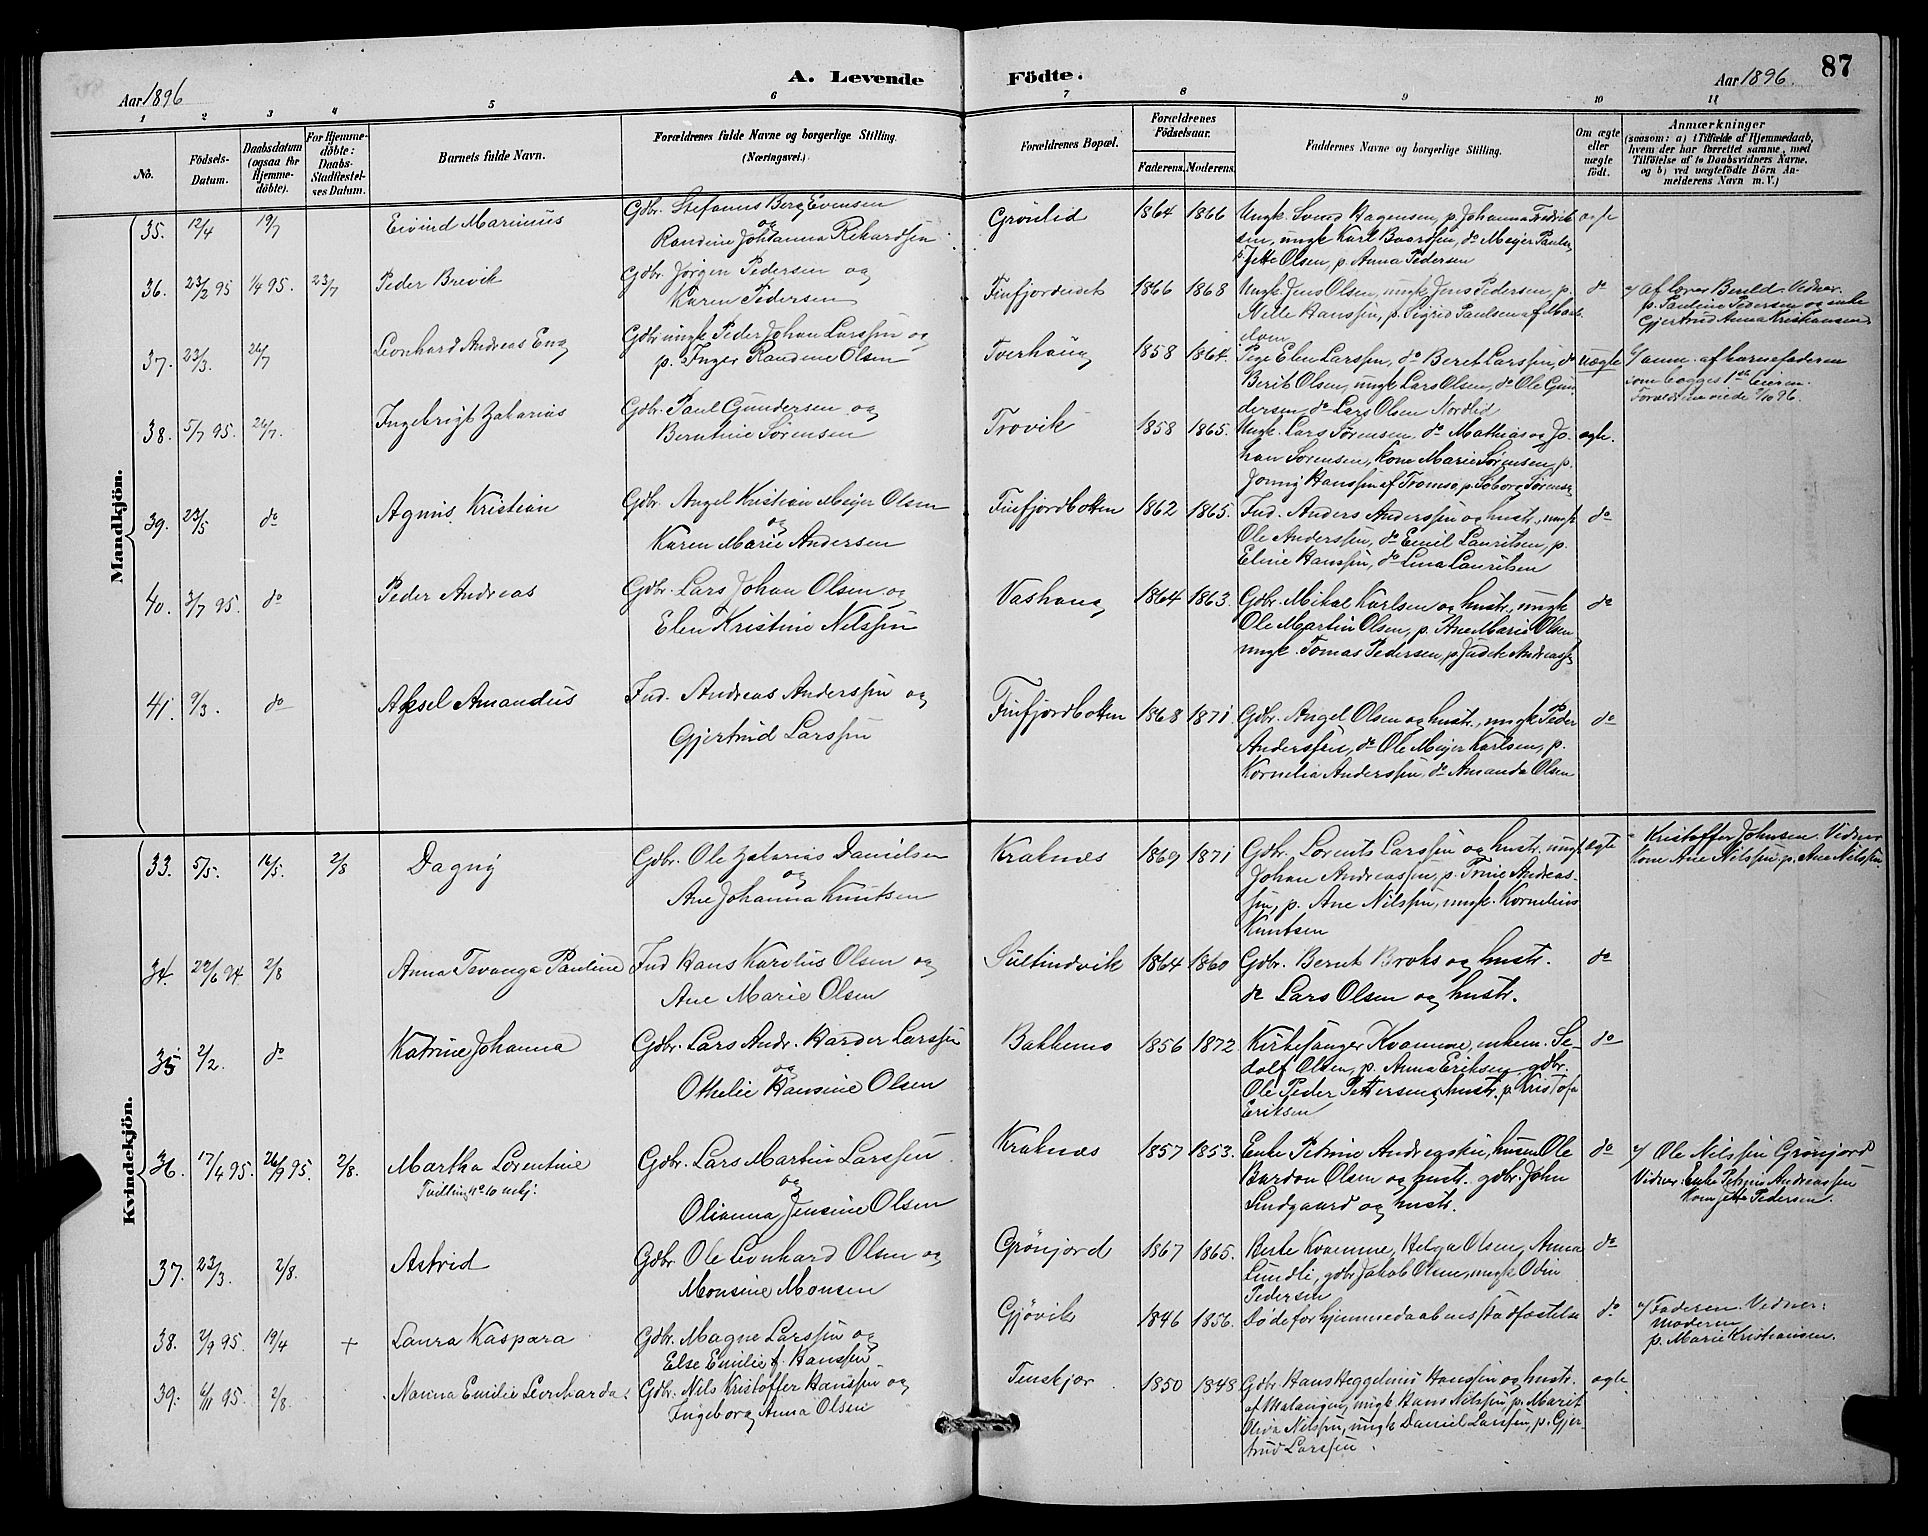 A. Levende Födte.
87
Aar 1896
Aar 1896.
1 2 3 4 5 6 7 8 9 10 11
No.
Födsels-Datum.
Daabsdatum (ogsaa for Hjemme-döbte).
For Hjemme-döbte: Daabs-Stadfæstel-ses Datum.
Barnets fulde Navn.
Forældrenes fulde Navne og borgerlige Stilling. (Næringsvei.)
Forældrenes Bopæl.
Forældrenes Födselsaar.
Faderens. Moderens.
Faddernes Navne og borgerlige Stilling.
Om ægte eller uægte födt.
Anmærkninger
(saasom: a) i Tilfælde af Hjemmedaab, hvem der har forrettet samme, med Tilföielse af to Daabsvidners Navne, og b) ved uægtefödte Börn Anmelderens Navn m. V.)
Mandkjön.
35. 12/4 19/7 Eivind Marinius
Gdbr. Stefanus Berg Evensen
og
Randine Johanna Rikardsen
Grönlid 1864 1866
Ungk. Svend Hagensen, p. Johanna Fredrik
sen, ungk Karl Baardsen, do Meyer Paulsen
p. Jette Olsen, p. Anna Pedersen
ægte
36. 23/2 95 1/4 95. 23/7 Peder Brevik
Gdbr. Jørgen Pedersen og
Karen Pedersen
Finfjordeidet 1866 1868
Ungk Jens Olsen, ungk Jens Pedersen, p.
Nelle Hanssen, p. Sigrid Paulsen af Maals
elven
do
Vidner.
p. Pauline Pedersen og enke
Gjertrud Anna Kristiansen
37. 23/3. 26/7 Leonhard Andreas Eng
Gdbr ungk Peder Johan Larssen og
p. Inger Randine Olsen
Tverhaug 1858 1864.
Pige Elen Larssen, do Beret Larssen, do
Berit Olsen, ungk Lars Olsen, do Ole Gun
dersen do Lars Olsen Nordlid
uægte
anm. af barnefaderen
som begges 1ste leierm.
38. 5/7 95. 26/7. Ingebrigt Zakarias
Gdbr. Paul Gundersen og
Berntine Sørensen
Trovik 1858 1865.
Ungk. Lars Sørensen, do Mathias og Jo-
han Sørensen, kone Marie Sørensen, p.
Jonny Hanssen af Tromsø, p. Soborg Sørensen
ægte.
39. 23/5 do Agnus Kristian
Gdbr. Angel Kristian Meyer Olsen
og
Karen Marie Andersen
Finfjordbotten 1862 1865.
Ind. Anders Anderssen og hustr., ungk
Ole Anderssen, do Emil Lauritsen, p.
Eline Hanssen, do Lina Lauritsen
do
40. 3/7 95. do Peder Andreas
Gdbr. Lars Johan Olsen og
Elen Kristine Nilssen
Vashaug 1864 1863.
Gdbr. Mikal Karlsen og hustr., ungk
Ole Martin Olsen, p. Ane Marie Olsen
ungk. Tomas Pedersen, p. Judete Andreassen
do
41. 9/3. do Aksel Amandus
Ind. Andreas Anderssen og
Gjertrud Larssen
Finfjordbotten 1868 1871.
Gdbr. Angel Olsen og hustr., ungk Peder
Anderssen, do Ole Meyer Karlsen, p.
Kornelia Anderssen, do Amanda Olsen
do
Kvindekjön.
33. 5/5. 16/5. 2/8 Dagny
Gdbr. Ole Zakarias Danielsen
og
Ane Johanna Knutsen
Kraknes 1869 1871
Gdbr. Lorents Larssen og hustr. ungk
Johan Andreassen, p. Trine Andreas-
sen, p. Ane Nilssen, ungk. Kornelius
Knutsen
ægte
Kristoffer Johnsen. Vidner
Kone Ane Nilssen, p. Ane Nilssen
34. 22/6 94. 2/8 Anna Tevanga Pauline
Ind Hans Karolius Olsen og
Ane Marie Olsen
Sultindvik 1864 1860
Gdbr. Bernt Broks og hustr.
do Lars Olsen og hustr.
do
35 2/2. do Katrine Johanna
Gdbr. Lars Andr. Harder Larssen
og
Othelie Hansine Olsen
Bakkemo 1856 1872
Kirkesanger Kvamme, enkem. Se-
dolf Olsen, p. Anna Eriksen gdbr.
Ole Peder Pettersen og hustr. p. Kristofa
Eriksen
do
36. 17/4 95. 26/9 95. 2/8. Martha Lorentine
Tvilling no 10 mkj.
Gdbr. Lars Martin Larssen
og
Olianna Jensine Olsen
Kraknes 1857 1853.
Enke Petrine Andreassen, husm Ole
Bardon Olsen og hustr. gdbr. John
Lindgaard og hustr.
do
Ole Nilssen Grönjord
Vidner. Enke Petrine Andreassen
Kone Jette Pedersen.
37. 23/3. 2/8. Astrid
Gdbr. Ole Leonhard Olsen og
Monsine Monsen
Grönjord 1867 1865.
Berte Kvamme, Helga Olsen, Anna
Lundli, gdbr Jakob Olsen, ungk Odin
Pedersen
do
38. 2/9 95. 19/4 + Laura Kaspara
Gdbr. Magne Larssen og
Else Emilie f. Hanssen
Gjøvik 1846 1856.
Døde før hjemmedaabens stadfæstelse
do
Faderen. Vidner:
Moderen
p. Marie Kristiansen.
39. 6/11 95. 2/8. Nanna Emilie Leonharda.
Gdbr. Nils Kristoffer Hanssen og
Ingeborg Anna Olsen
Tenskjær 1850 1848
Gdbr Hans Heggelius Hanssen og hustr.
af Malangen, ungk Hans Nilssen, p. Marit
Oliva Nilssen, ungk Daniel Larssen, p. Gjer-
trud Larssen.
ægte